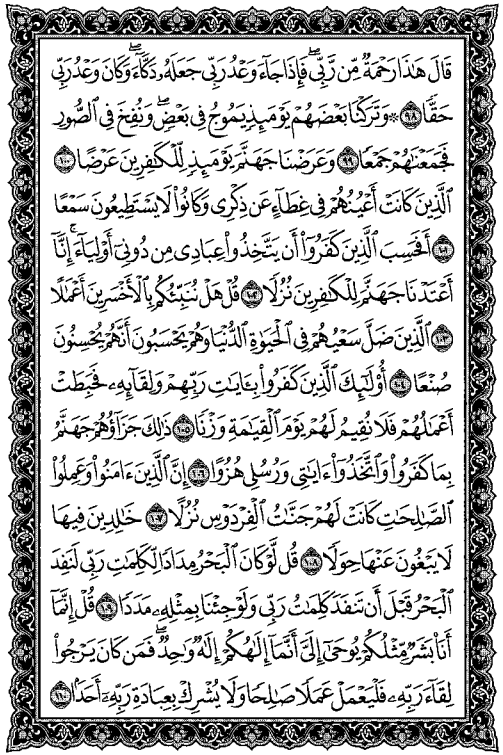 قَالَ هَٰذَا رَحْمَةٌ مِّن رَّبِّي ۖ فَإِذَا جَاءَ وَعْدُ رَبِّي جَعَلَهُ دَكَّاءَ ۖ وَكَانَ وَعْدُ رَبِّي
حَقًّا ٩٨ ۞ وَتَرَكْنَا بَعْضَهُمْ يَوْمَئِذٍ يَمُوجُ فِي بَعْضٍ ۖ وَنُفِخَ فِي الصُّورِ
فَجَمَعْنَاهُمْ جَمْعًا ٩٩ وَعَرَضْنَا جَهَنَّمَ يَوْمَئِذٍ لِّلْكَافِرِينَ عَرْضًا ١٠٠
الَّذِينَ كَانَتْ أَعْيُنُهُمْ فِي غِطَاءٍ عَن ذِكْرِي وَكَانُوا لَا يَسْتَطِيعُونَ سَمْعًا
١٠١ أَفَحَسِبَ الَّذِينَ كَفَرُوا أَن يَتَّخِذُوا عِبَادِي مِن دُونِي أَوْلِيَاءَ ۚ إِنَّا
أَعْتَدْنَا جَهَنَّمَ لِلْكَافِرِينَ نُزُلًا ١٠٢ قُلْ هَلْ نُنَبِّئُكُم بِالْأَخْسَرِينَ أَعْمَالًا
١٠٣ الَّذِينَ ضَلَّ سَعْيُهُمْ فِي الْحَيَاةِ الدُّنْيَا وَهُمْ يَحْسَبُونَ أَنَّهُمْ يُحْسِنُونَ
صُنْعًا ١٠٤ أُولَٰئِكَ الَّذِينَ كَفَرُوا بِآيَاتِ رَبِّهِمْ وَلِقَائِهِ فَحَبِطَتْ
أَعْمَالُهُمْ فَلَا نُقِيمُ لَهُمْ يَوْمَ الْقِيَامَةِ وَزْنًا ١٠٥ ذَٰلِكَ جَزَاؤُهُمْ جَهَنَّمُ
بِمَا كَفَرُوا وَاتَّخَذُوا آيَاتِي وَرُسُلِي هُزُوًا ١٠٦ إِنَّ الَّذِينَ آمَنُوا وَعَمِلُوا
الصَّالِحَاتِ كَانَتْ لَهُمْ جَنَّاتُ الْفِرْدَوْسِ نُزُلًا ١٠٧ خَالِدِينَ فِيهَا
لَا يَبْغُونَ عَنْهَا حِوَلًا ١٠٨ قُل لَّوْ كَانَ الْبَحْرُ مِدَادًا لِّكَلِمَاتِ رَبِّي لَنَفِدَ
الْبَحْرُ قَبْلَ أَن تَنفَدَ كَلِمَاتُ رَبِّي وَلَوْ جِئْنَا بِمِثْلِهِ مَدَدًا ١٠٩ قُلْ إِنَّمَا
أَنَا بَشَرٌ مِّثْلُكُمْ يُوحَىٰ إِلَيَّ أَنَّمَا إِلَٰهُكُمْ إِلَٰهٌ وَاحِدٌ ۖ فَمَن كَانَ يَرْجُوا
لِقَاءَ رَبِّهِ فَلْيَعْمَلْ عَمَلًا صَالِحًا وَلَا يُشْرِكْ بِعِبَادَةِ رَبِّهِ أَحَدًا ١١٠